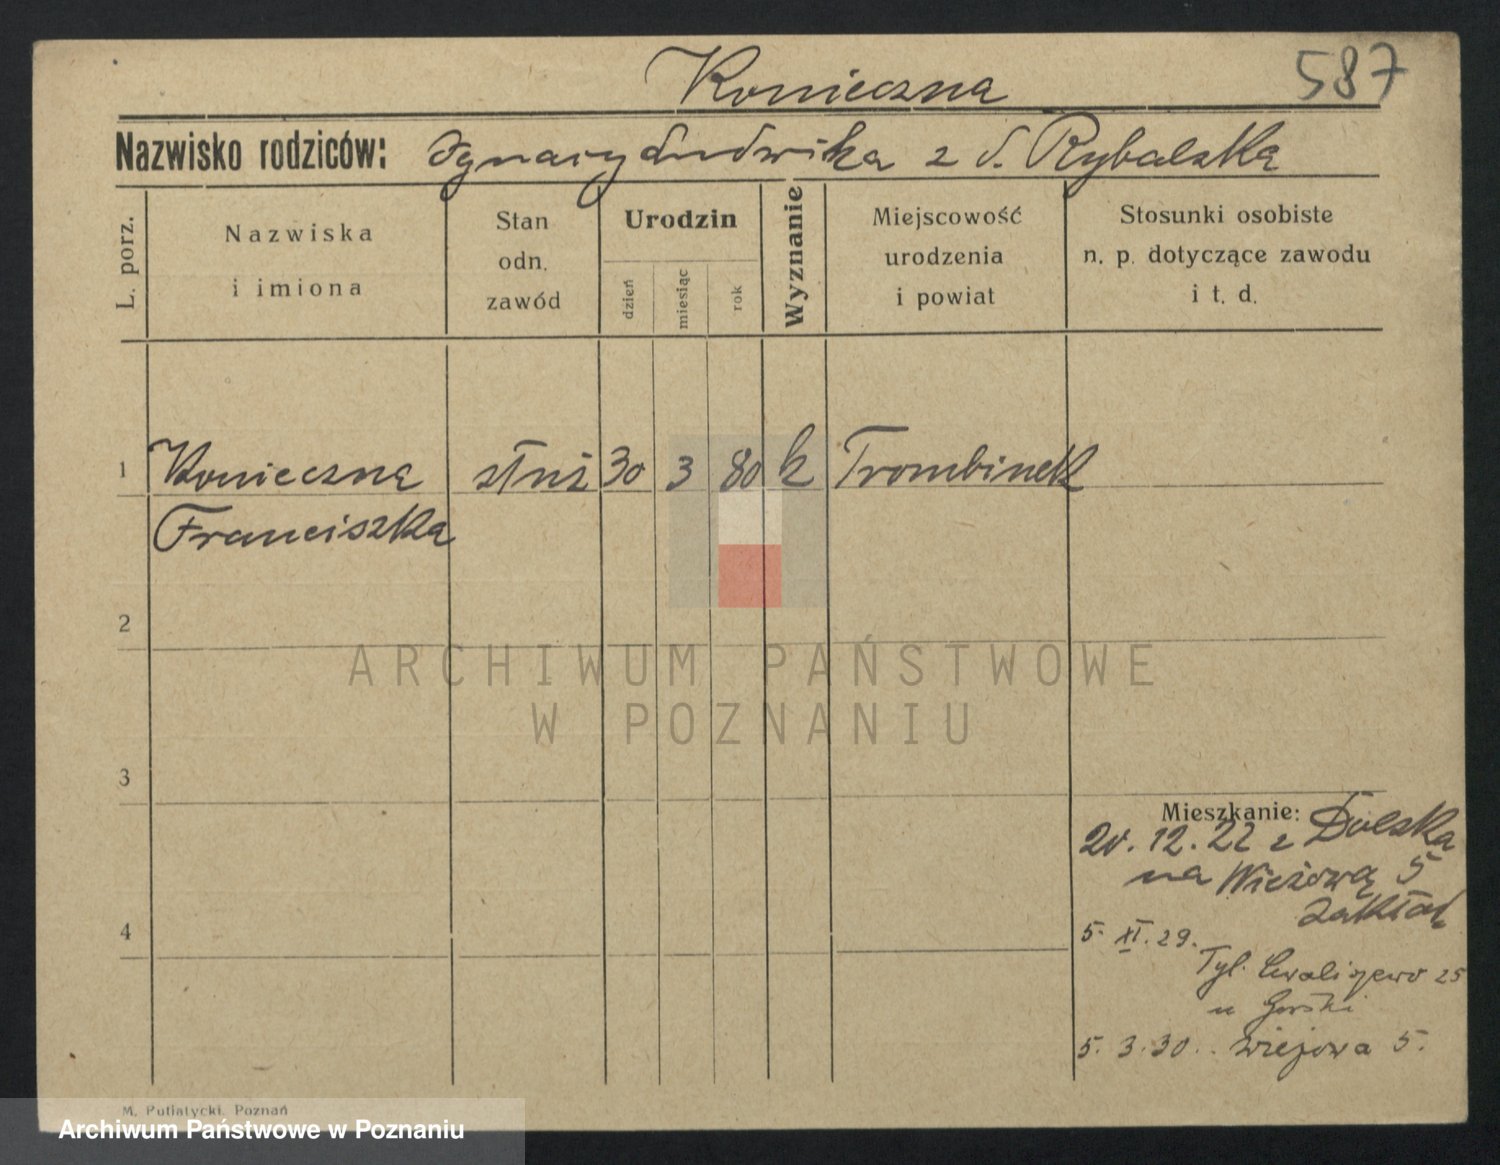 Konieczna
587
Nazwisko rodziców: Ignacy Ludwika z d. Rybalska
L. porz.
Nazwiska
i imiona
Stan
odn.
zawód
Urodzin
dzień
miesiąc
rok
Wyznanie
Miejscowość
urodzenia
i powiat
Stosunki osobiste
n. p. dotyczące zawodu
i t. d.
1 Konieczna służ 30 3 80 k Trombinek
Franciszka
2
ARCHIWUM PAŃSTWOWE
W POZNANIU
3
Mieszkanie:
20.12.22 z Dolska
na Wieżową 5
zakład
4
5. XI. 29.
25
u Gorski
5. 3. 30. Wiejowa 5.
M. Putiatycki, Poznań
Archiwum Państwowe w Poznaniu